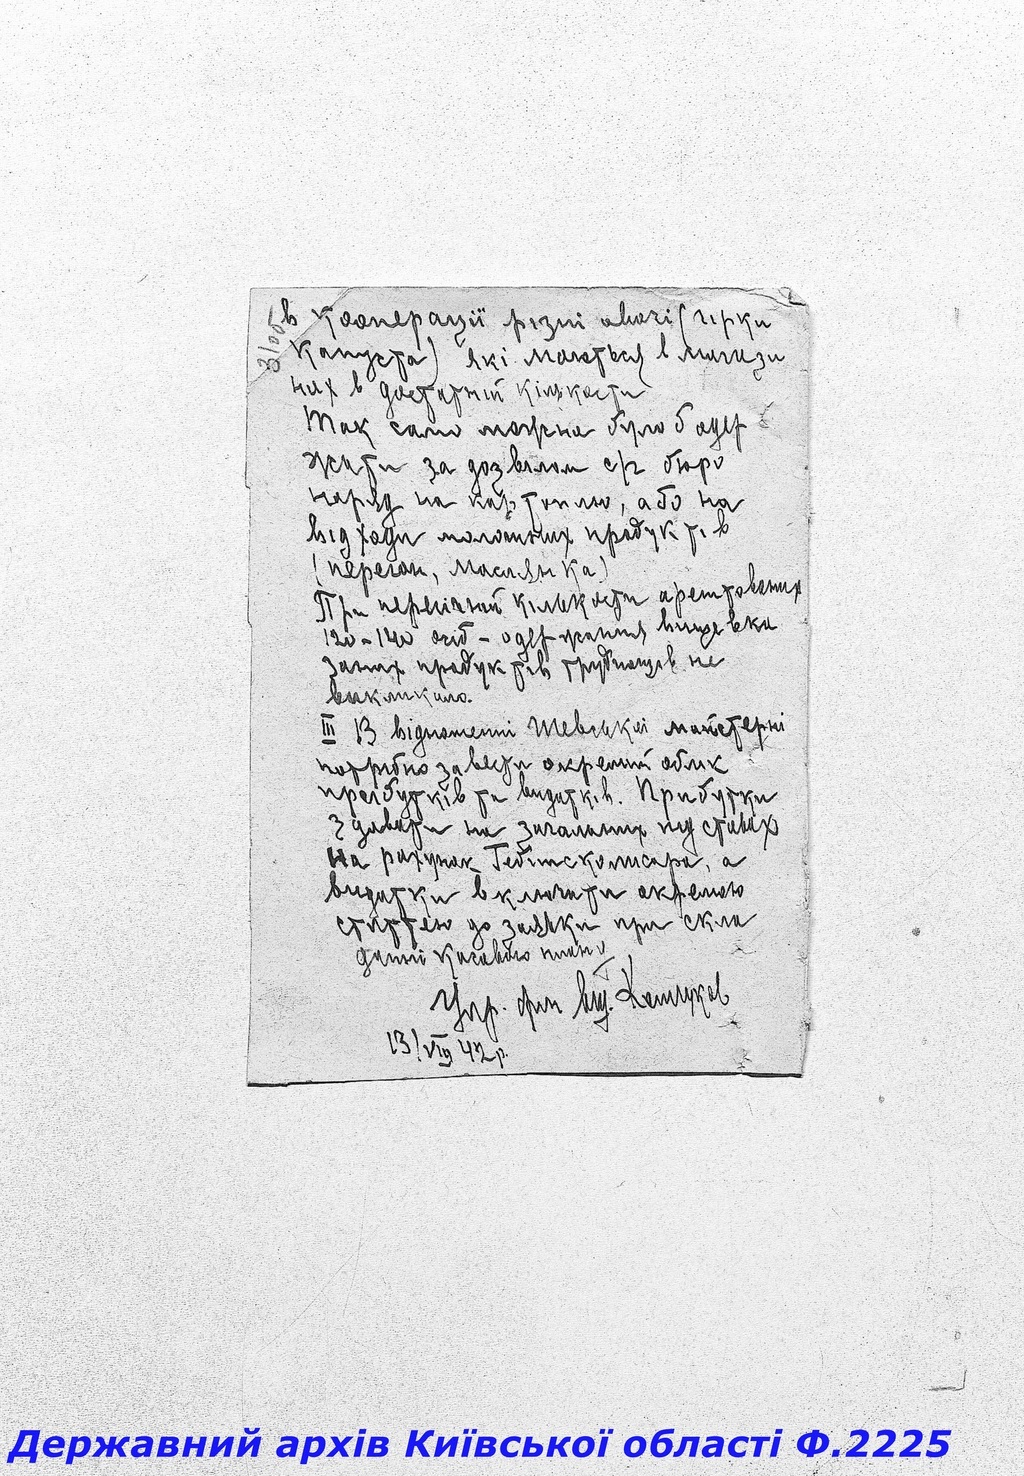 31об
в кооперації різні овочі (гірки
капуста) які маються в магази
нах в достатній кількости
Так само можна було б одер
жати за дозволом с/г бюро
наряд на картоплю, або на
відходи молочних продуктів
(перегон, маслянка)
При пересічной кількости арештованих
120-140 осіб - одержання вищевка
заних продуктів труднощів не
викликало.
III В відношенні Шевської майстерні
потрібно завести окремий облік
прибутків та видатків. Прибутки
здавати на загальних підставах
на рахунок Гебітскомісара, а
видатки включати окремою
статтею до заявки при скла
данні касового плану
Упр. фін від.
13/VIII 42 р.
Державний архів Київської області Ф.2225